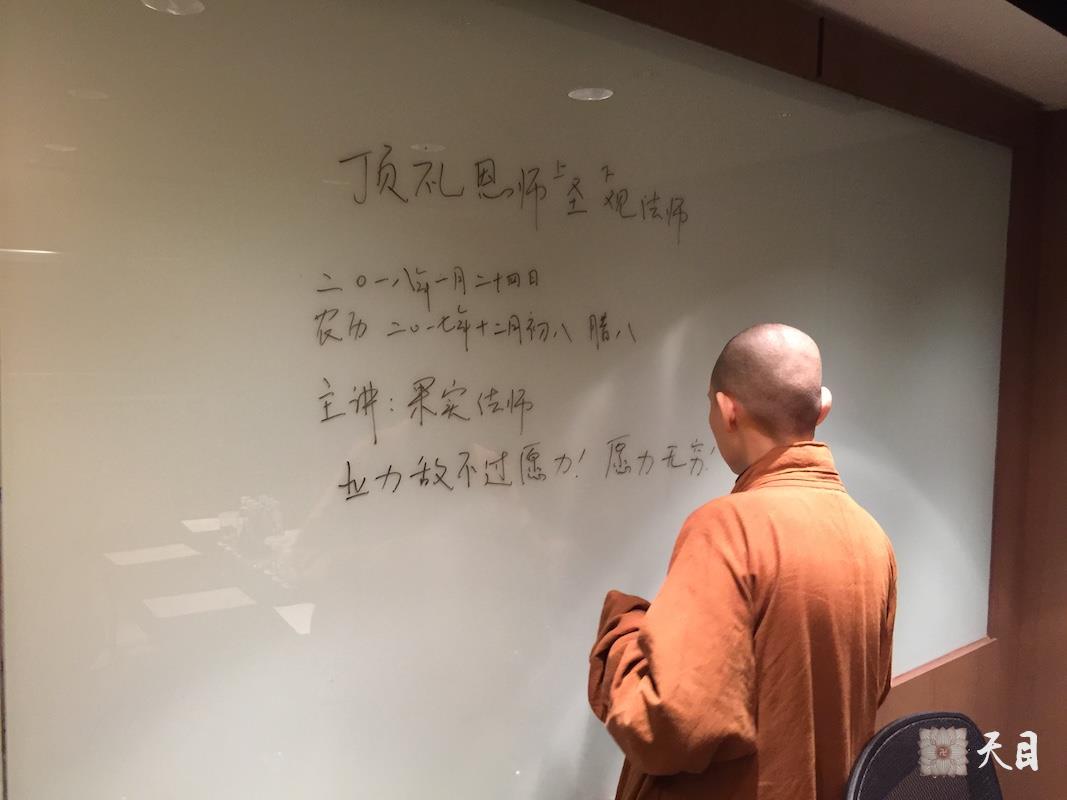 顶礼恩师上圣下观法师
二〇一八年一月二十四日
农历 二〇一七年十二月初八 腊八
主讲：果实法师
业力敌不过愿力！愿力无穷！
天目